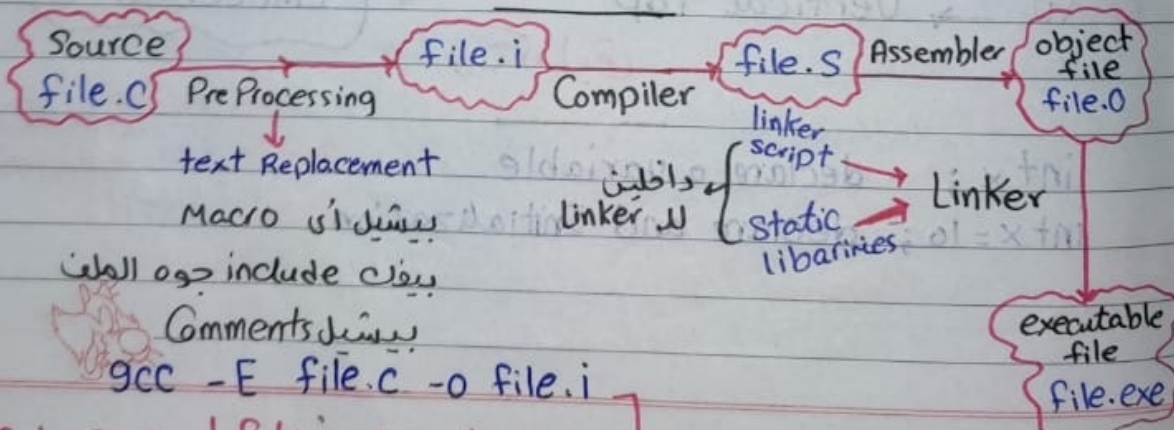 Source
file.C
PreProcessing
file.i
Compiler
file.S
Assembler
object
file
file.O
text Replacement
بيشيل أى Macro
بيفك include جوه الملف
بيشيل Comments
gcc -E file.c -o file.i
داخلين
لل Linker
linker
script
Static
libarires
Linker
executable
file
file.exe